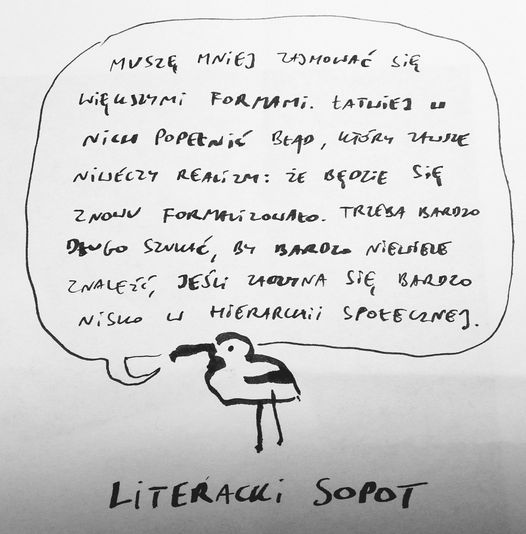 MUSZĘ MNIEJ ZAJMOWAĆ SIĘ
WIĘKSZYMI FORMAMI. ŁATWIEJ W
NICH POPEŁNIĆ BŁĄD, KTÓRY ZAWSZE
NIWECZY REALIZM: ŻE BĘDZIE SIĘ
ZNOWU FORMALIZOWAŁO. TRZEBA BARDZO
DŁUGO SZUKAĆ, BY BARDZO NIEWIELE
ZNALEŹĆ, JEŚLI ZACZYNA SIĘ BARDZO
NISKO W HIERARCHII SPOŁECZNEJ.
LITERACKI SOPOT